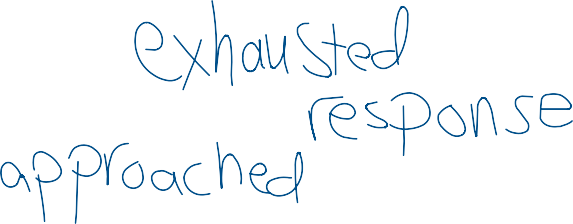 exhausted
response
approached